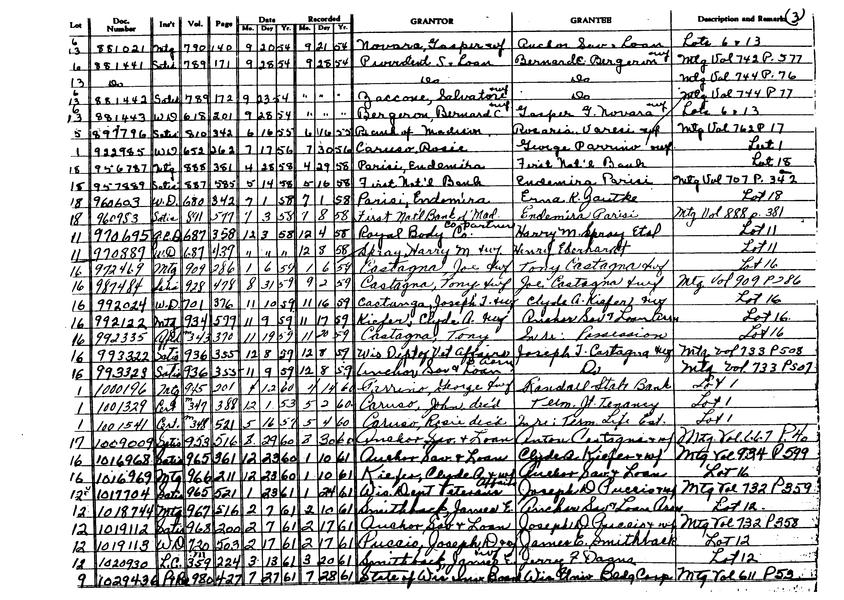 (3)
Lot Doc. Number Ins't Vol. Page Date Mo. Day Yr. Recorded Mo. Day Yr. GRANTOR GRANTEE Description and Remarks
6 13 881021 Mtg 790 140 9 20 54 9 21 54 Novara, Gasper & wf Anchor Sav & Loan Lots 6 & 13
6 881441 Satis 789 171 9 28 54 9 28 54 Provident S. & Loan Bernard C. Bergeron & wf Mtg Vol 742 P. 577
13 Do Do Do Mtg Vol 744 P. 76
6 13 881442 Satis 789 172 9 23 54 " " " Zaccone, Salvatore & wf Do Mtg Vol 744 P 77
6 13 881443 W.D 618 201 9 28 54 " " " Bergeron, Bernard C & wf Gasper J. Novara & wf Lots 6 & 13
5 897796 Satis 810 342 6 16 55 6 16 55 Bank of Madison Rosario Varesi & wf Mtg Vol 762 P 17
1 922985 W.D 652 262 7 17 56 7 30 56 Caruso, Rosie George Parrino & wf Lot 1
18 956787 Mtg 885 381 4 28 58 4 29 58 Parisi, Endemira First Nat'l Bank Lot 18
18 957889 Satis 887 585 5 14 58 5 16 58 First Nat'l Bank Endemira Parisi Mtg Vol 707 P. 342
18 960603 W.D. 680 342 7 1 58 7 1 58 Parisi, Endemira Erna K. Gaitke Lot 18
18 960983 Satis 891 577 7 3 58 7 8 58 First Nat'l Bank of Mad. Endemira Parisi Mtg Vol 888 p. 381
11 970695 687 358 12 3 58 12 4 58 Royal Body Co. Co partner Harry M. Spray Etal Lot 11
11 970887 W.D 687 439 " " " 12 8 58 Spray, Harry M & wf Henry Eberhardt Lot 11
16 972469 Mtg 909 286 1 6 59 1 6 59 Castagna, Joe & wf Tony Castagna & wf Lot 16
16 987484 928 478 8 31 59 9 2 59 Castagna, Tony & wf Joe Castagna & wf Mtg Vol 909 P 286
16 992024 W.D. 701 376 11 10 59 11 16 59 Castagna, Joseph T. & wf Clyde A. Kiefer & wf Lot 16
16 992122 Mtg 934 599 11 9 59 11 17 59 Kiefer, Clyde A. & wf Anchor Sav & Loan Assn Lot 16
16 992335 343 370 11 19 59 11 20 59 Castagna, Tony In re: Possession Lot 16
16 993322 Satis 936 355 12 8 59 12 8 59 Wis Dept of Vet Affairs Joseph T. Castagna & wf Mtg Vol 733 P 508
16 993323 Satis 936 355 11 9 59 12 8 59 Anchor Sav & Loan Do Mtg Vol 733 P 507
1 1000196 Mtg 945 201 4 12 60 4 14 60 Parrino, George & wf Randall State Bank Lot 1
1 1001329 Cert 347 388 12 1 53 5 2 60 Caruso, John dec'd Term. Jt. Tenancy Lot 1
1 1001541 Cert. 348 521 5 16 57 5 4 60 Caruso, Rosie dec'd In re: Term. Life Est. Lot 1
17 1009009 Satis 953 516 8 29 60 8 30 60 Anchor Sav. & Loan Anton Castagna & wf Mtg Vol. 667 P. 40
16 1016968 Satis 965 961 12 23 60 1 10 61 Anchor Sav. & Loan Clyde A. Kiefer & wf Mtg Vol 934 P 599
16 1016969 Mtg 966 211 12 23 60 1 10 61 Kiefer, Clyde A. & wf Anchor Sav. & Loan Lot 16
12 1017704 Satis 965 521 1 23 61 1 24 61 Wis. Dept Veterans Affairs Joseph D Puccio & wf Mtg Vol 732 P 359
12 1018744 Mtg 967 516 2 7 61 2 10 61 Smithback, James E. Anchor Sav & Loan Assn Lot 12
12 1019112 Satis 968 200 2 7 61 2 17 61 Anchor Sav & Loan Joseph D. Puccio & wf Mtg Vol 732 P 358
12 1019113 W.D 720 503 2 17 61 2 17 61 Puccio, Joseph D & wf James E. Smithback Lot 12
12 1020930 L.C. 359 224 3 13 61 3 20 61 Smithback, James E. & wf Jerry F Lot 12
9 1029436 980 427 7 27 61 7 28 61 State of Wis Inv Board Wis Univ Bldg Corp Mtg Vol 611 P 53